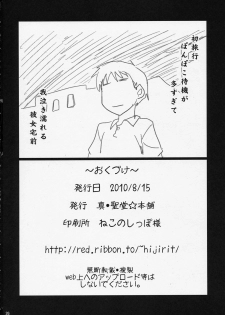 初旅行
ぽんぽこ待機が
多すぎて
我泣き濡れる
彼女宅前
～おくづけ～
発行日 2010/8/15
発行 真・聖堂☆本舗
印刷所 ねこのしっぽ様
http://red.ribbon.to/~hijirit/
無断転載・複製
web上へのアップロード等は
しないでください。